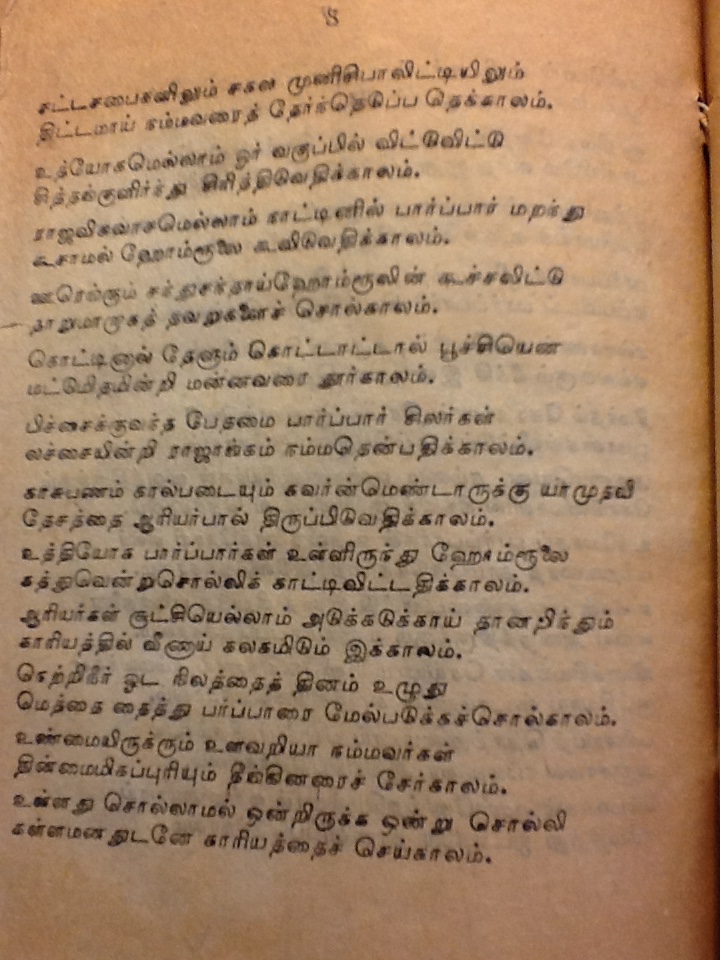 8
சட்டசபைகளிலும் சகல முனிசிபாலிட்டியிலும்
திட்டமாய் நம்மவரைத் தேர்ந்தெடுப்ப தெக்காலம்.
உத்யோகமெல்லாம் ஓர் வகுப்பில் விட்டுவிட்டு
சித்தங்குளிர்ந்து சிரித்திடுவதிக்காலம்.
ராஜவிசுவாசமெல்லாம் நாட்டினில் பார்ப்பார் மறந்து
கூசாமல் ஹோம்ரூலை கூவிடுவதிக்காலம்.
ஊரெங்கும் சந்துசந்தாய்ஹோம்ரூலின் கூச்சலிட்டு
தாறுமாறாகத் தவறுகளைச் சொல்காலம்.
கொட்டினால் தேளும் கொட்டாட்டால் பூச்சியென
மட்டுமிதமின்றி மன்னவரை தூர்காலம்.
பிச்சைக்குவந்த பேதமை பார்ப்பார் சிலர்கள்
லச்சையின்றி ராஜாங்கம் நம்மதென்பதிக்காலம்.
காசுபணம் கால்படையும் கவர்ன்மெண்டாருக்கு யாமுதவி
தேசத்தை ஆரியர்பால் திருப்பிடுவதிக்காலம்.
உத்தியோக பார்ப்பார்கள் உள்ளிருந்து ஹோம்ரூலை
கத்துவென்றுசொல்லிக் காட்டிவிட்டதிக்காலம்.
ஆரியர்கள் சூட்சியெல்லாம் அடுக்கடுக்காய் தானறிந்தும்
காரியத்தில் வீணாய் கலகமிடும் இக்காலம்.
நெற்றிநீர் ஓட நிலத்தைத் தினம் உழுது
மெத்தை தைத்து பார்ப்பாரை மேல்படுக்கச்சொல்காலம்.
உண்மையிருக்கும் உளவறியா நம்மவர்கள்
தின்மைமிகப்புரியும் தீங்கினரைச் சேர்காலம்.
உள்ளது சொல்லாமல் ஒன்றிருக்க ஒண்று சொல்லி
கள்ளமனதுடனே காரியத்தைச் செய்காலம்.